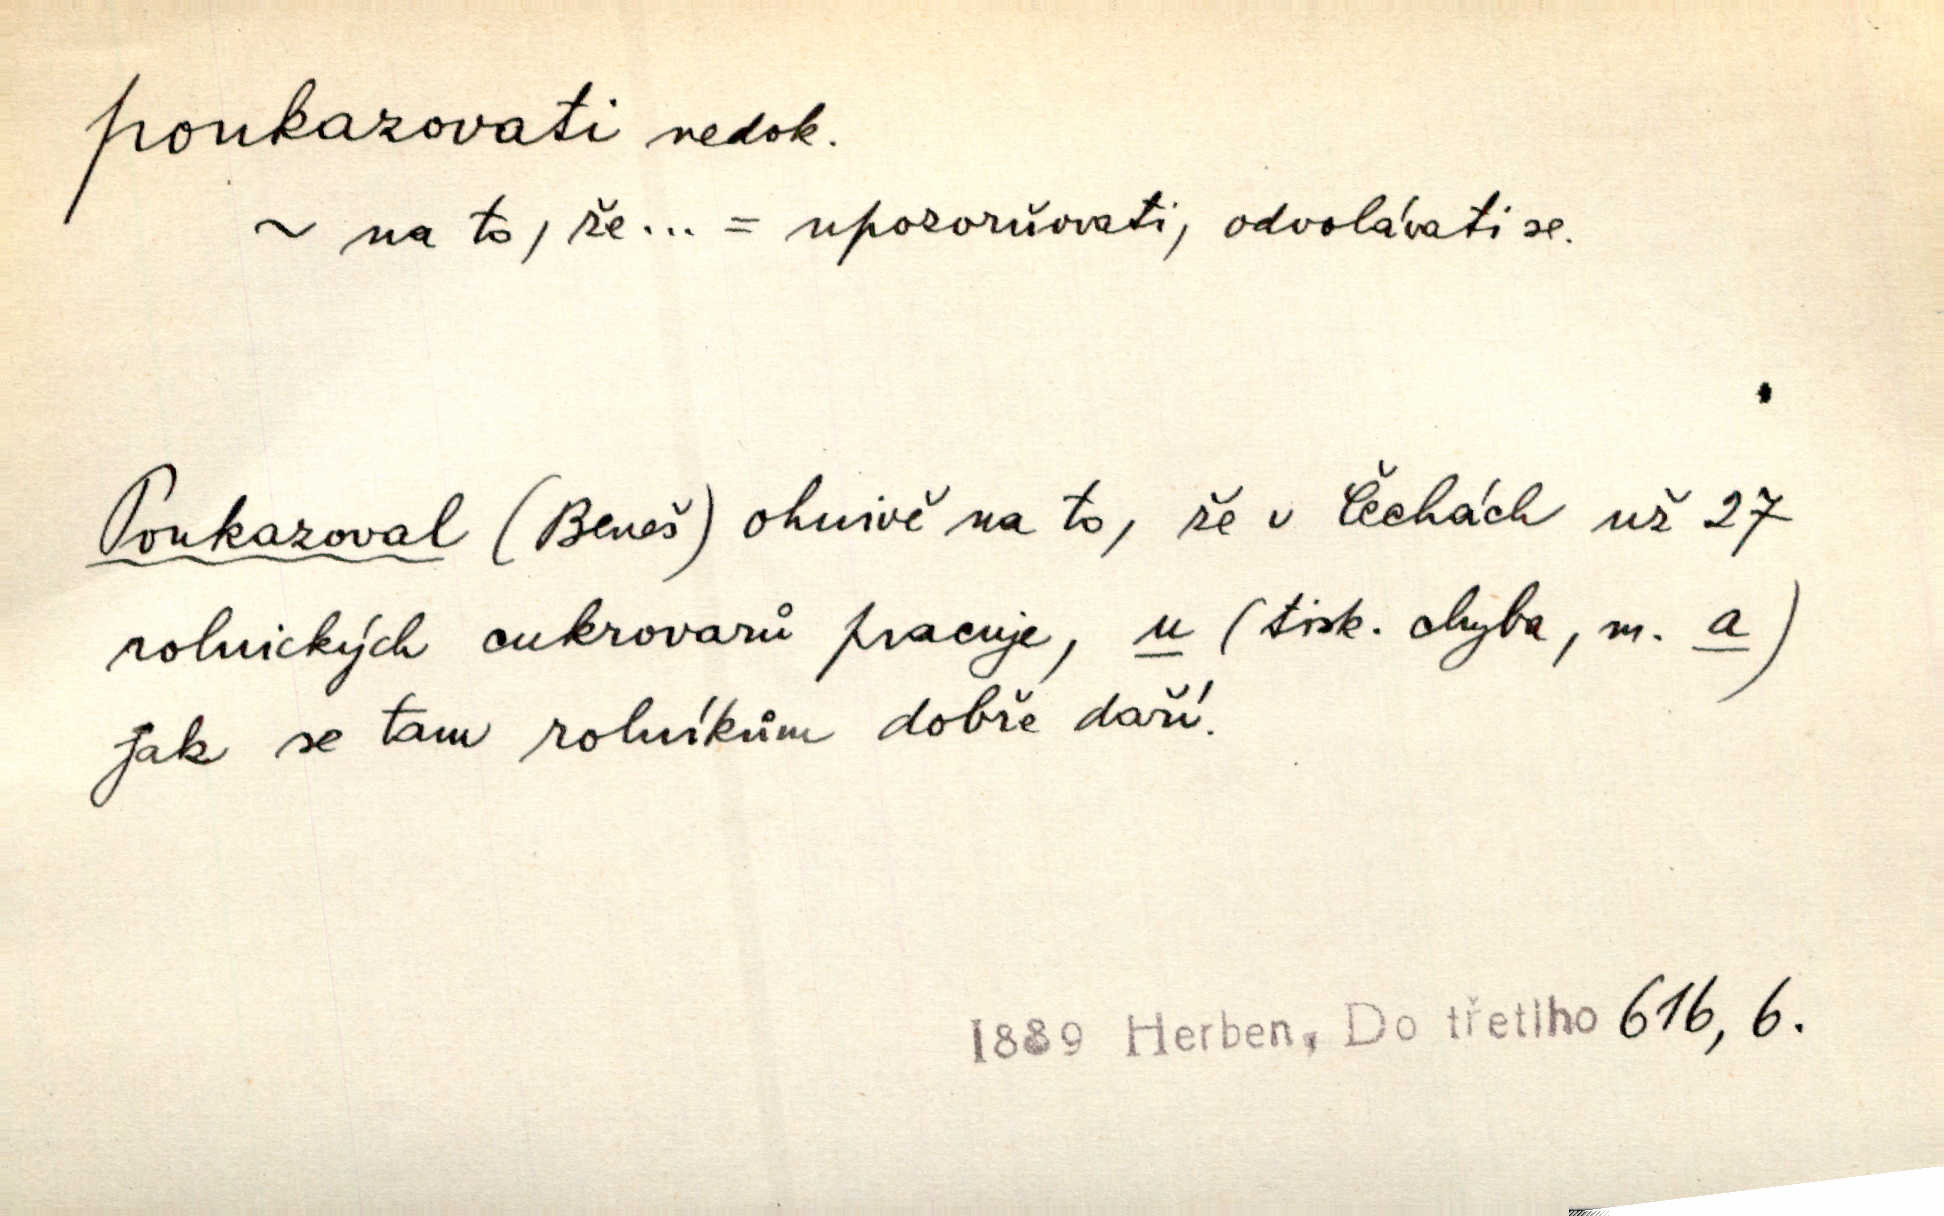 poukazovati nedok.
~ na to, že... = upozorňovati, odvolávati se.
Poukazoval (Beneš) ohnivě na to, že v Čechách už 27
rolnických cukrovarů pracuje, u (tisk. chyba, m. a)
jak se tam rolníkům dobře daří.
1889 Herben, Do třetího 616, 6.